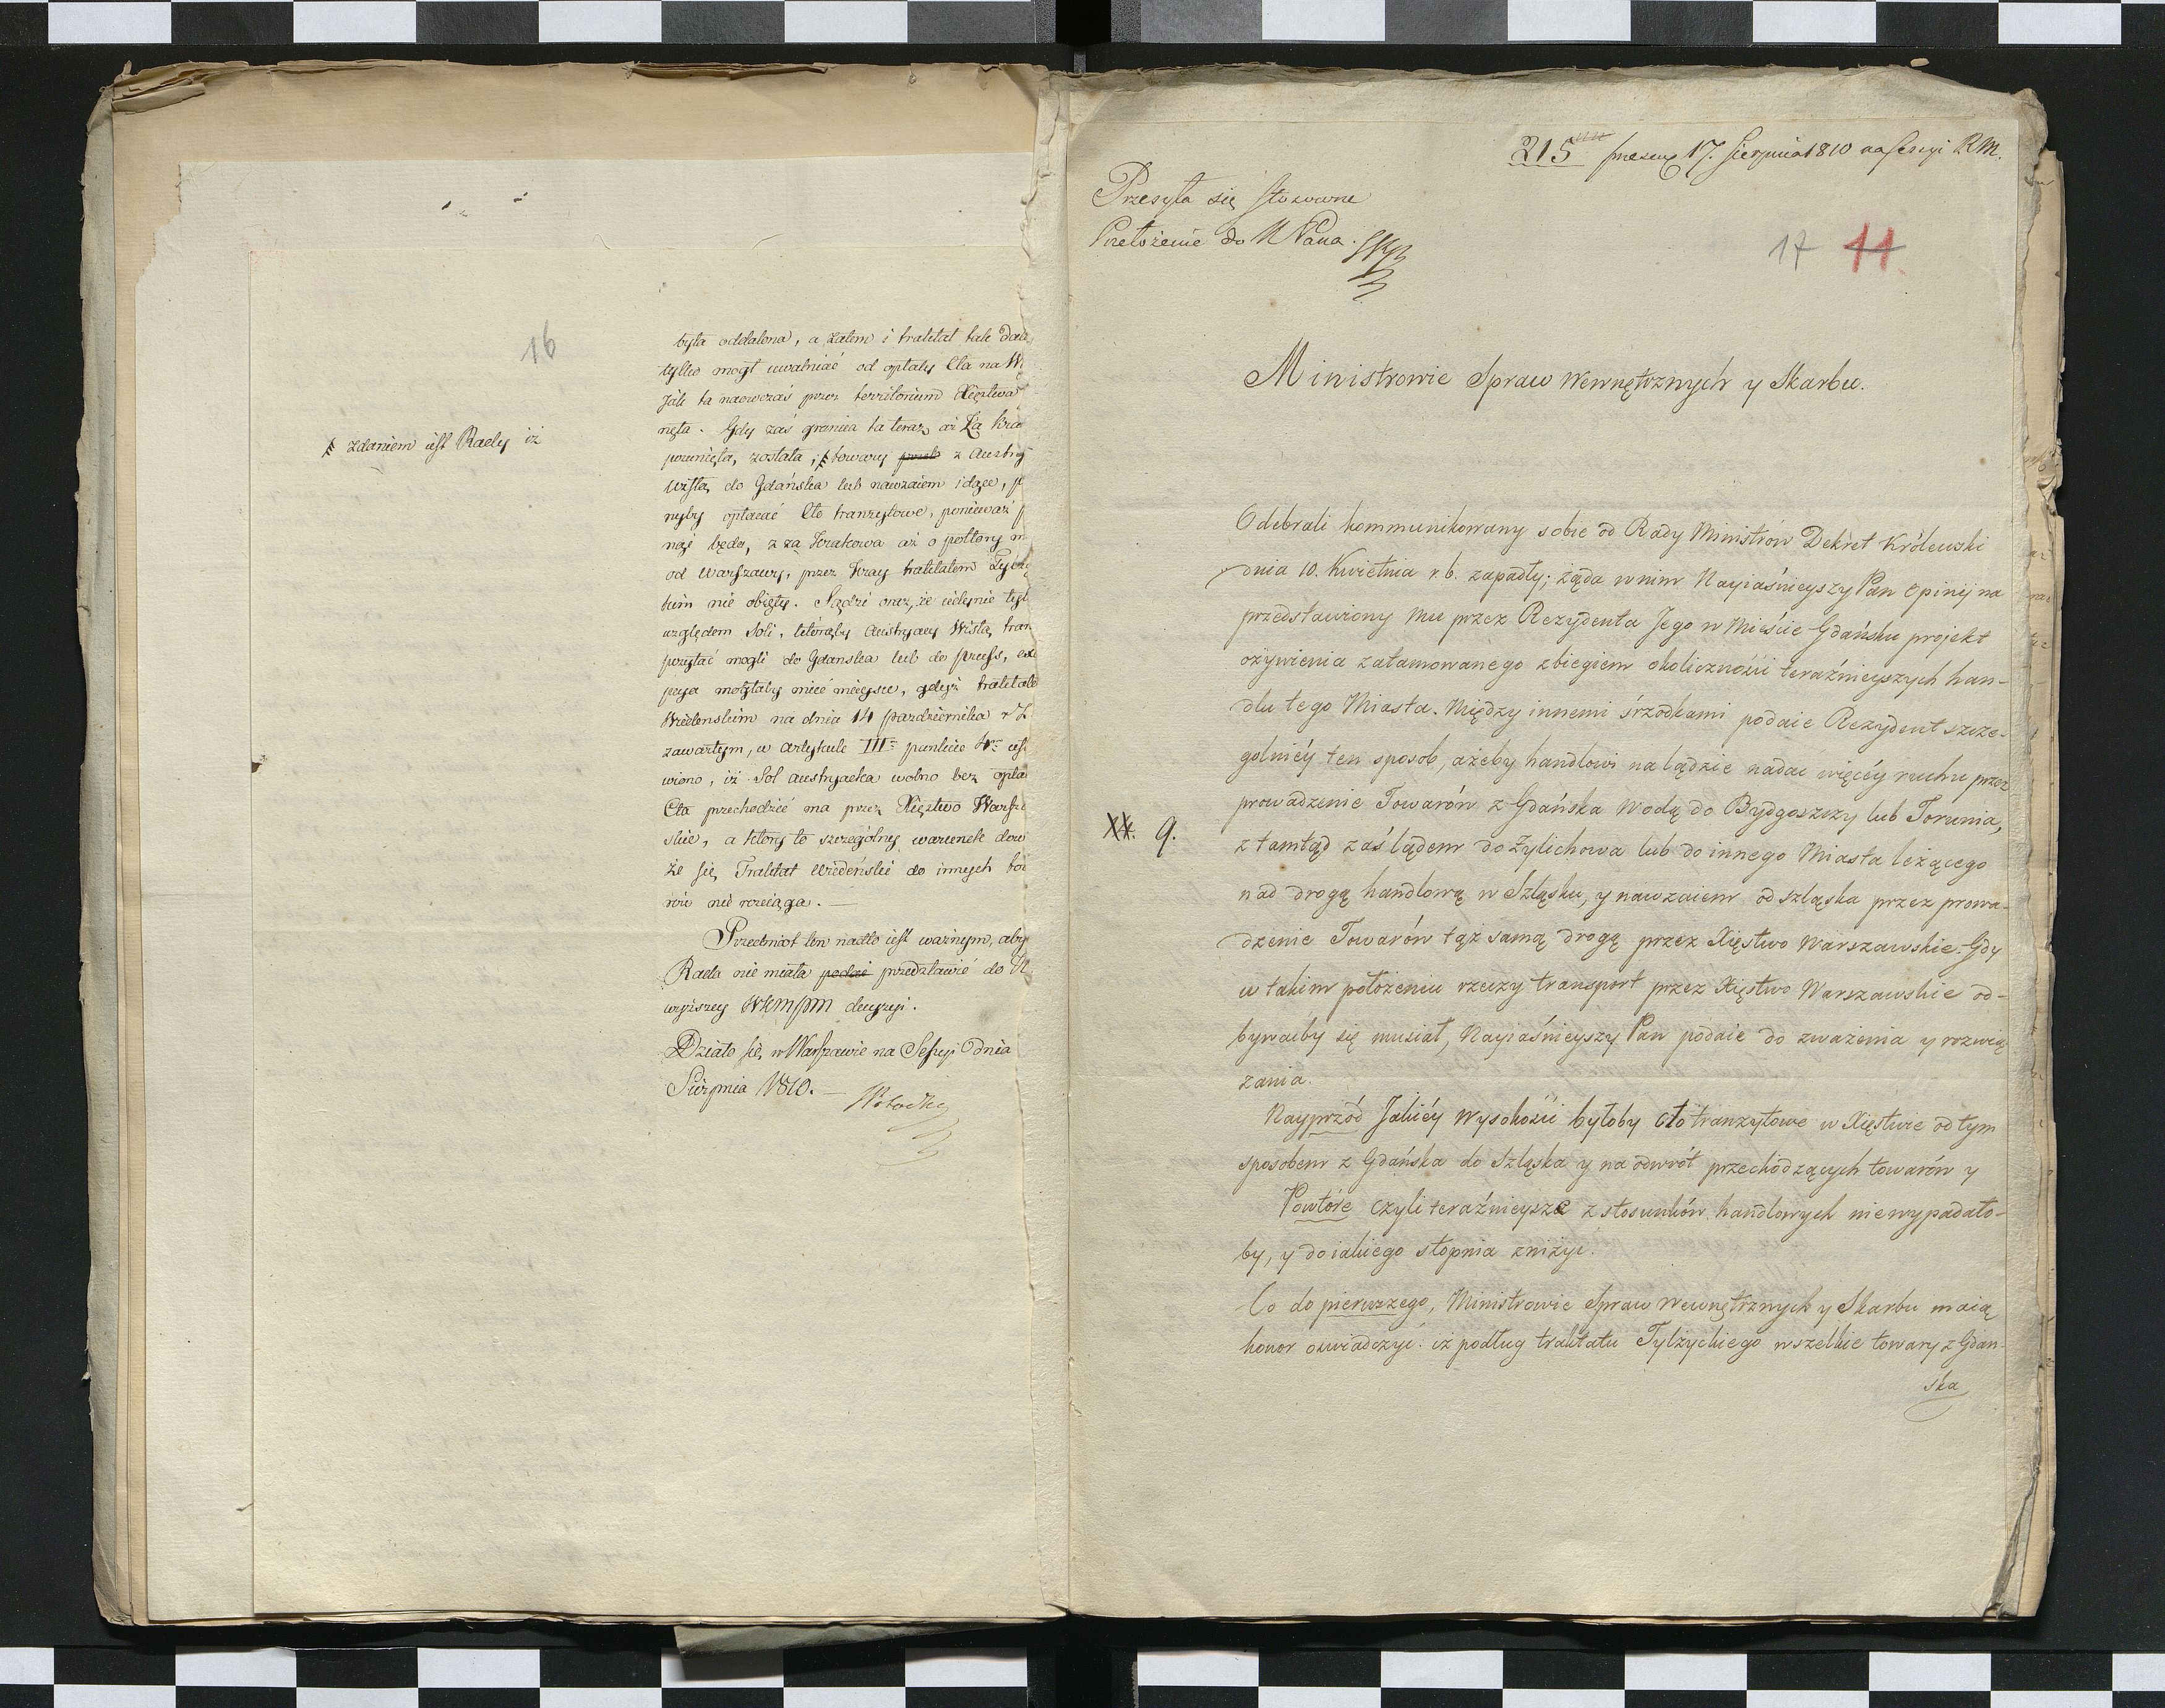 16
była oddalona, a zatem i traktat tak
tylko mogł uwalniać od opłaty Cła na
jak ta naowczas przez territorium Xięstwa
nęła. Gdy zaś granica ta teraz aż Za
§ zdaniem iest Rady iż
posunięta, została, § towary z
Wisłą do Gdańska lub nawzaiem idące,
nyby opłacać Cło tranzytowe, ponieważ
będą, z za Krakowa aż o połtory
od Warszawy, przez Kray traktatem
kim nie obięty. Sądzi oraz, że iedynie
względem Soli, ktorąby Austryacy Wisłą
mogli do Gdanska lub do Pruss,
mogłaby mieć mieysce, gdyż
Wiedenskim na dnia 14 pazdziernika
zawartym, w artykule III punkcie
wiono, iż Sol austryacka wolno bez
Cła przechodzić ma przez Xięstwo
skie, a ktory to szczegolny warunek
że się Traktat Wiedeński do innych
rów nie rozciąga. —
Przedmiot ten nadto iest ważnym, aby
Rada nie miała podać przedstawić do
wyższey WKMPM decyzyi.
Działo się w Warszawie na Sessyi dnia
Sierpnia 1810. —
215 17. Sierpnia 1810 na Sessyi RM.
Przesyła się stosowne
Przełożenie do N Pana.
17 11
Ministrowie Spraw Wewnętrznych y Skarbu.
Odebrali kommunikowany sobie od Rady Ministrów Dekret Królewski
dnia 10. Kwietnia r. b. zapadły; żąda w nim Nayiaśnieyszy Pan Opinij na
przedstawiony Mu przez Rezydenta Jego w Mieście Gdańsku projekt
ożywienia zatamowanego zbiegiem okoliczności teraźnieyszych han-
dlu tego Miasta. Między innemi śrzodkami podaie Rezydent szcze-
golniéy ten sposob, ażeby handlowi na lądzie nadać więcéy ruchu przez
prowadzenie Towarów z Gdańska Wodą do Bydgoszczy lub Torunia,
XX. 9.
z tamtąd zaś lądem do Zylichowa lub do innego Miasta leżącego
nad drogą handlową w Szląsku, y nawzaiem od szląska przez prowa-
dzenie Towarów tąż samą drogą przez Xięstwo Warszawskie. Gdy
w takim położeniu rzeczy transport przez Xięstwo Warszawskie od-
bywaćby się musiał, Nayiaśnieyszy Pan podaie do zważenia y rozwią
zania.
Nayprzód Jakiéy Wysokości byłoby Cło tranzytowe w Xięstwie od tym
sposobem z Gdańska do Szląska y na odwrót przechodzących towarów y
Powtóre Czyli teraźnieysze z stosunków handlowych niewypadało-
by, y do iakiego stopnia zniżyć.
Co do pierwszego, Ministrowie Spraw Wewnętrznych y Skarbu maią
honor oświadczyć: iż podług traktatu Tylżyckiego wszelkie towary z Gdan-
ska